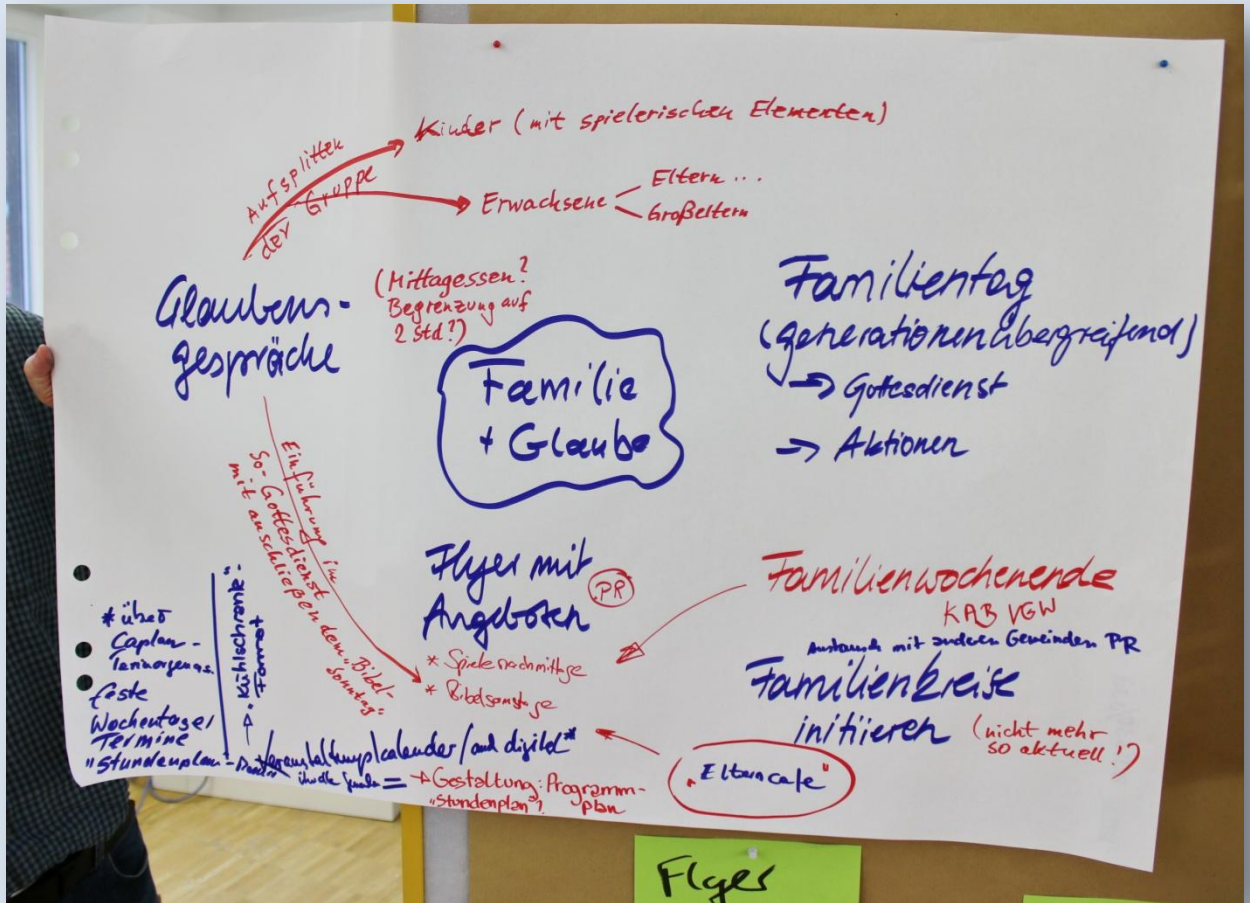 Kinder (mit spielerischen Elementen)
Aufsplitten
der Gruppe
Erwachsene
Eltern ...
Großeltern
Glaubens-
gespräche
(Mittagessen?
Begrenzung auf
2 Std?)
Familie
+ Glaube
Familientag
(generationenübergreifend)
→ Gottesdienst
→ Aktionen
Einführung im
So-Gottesdienst
mit anschließendem "Bibel-
sonntag"
Flyer mit
Angeboten
PR
* Spielenachmittage
* Bibelsonntage
Familienwochenende
KAB VGW
Austausch mit anderen Gemeinden PR
Familienkreise
initiieren
(nicht mehr
so aktuell!?)
"Elterncafe"
* über
Caplan-
feste
Wochentage/
Termine
"Stundenplan"-
"Kühlschrank"-
Format
Veranstaltungskalender/auch digital*
→ Gestaltung: Programm-
plan
"Stundenplan"?
Flyer